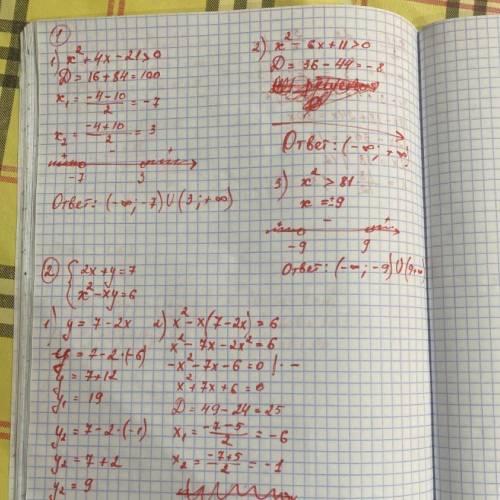 1
1) x² + 4x - 21 > 0
D = 16 + 84 = 100
x₁ = (-4-10)/2 = -7
x₂ = (-4+10)/2 = 3
+ - +
-7 3
Ответ: (-∞; -7) ∪ (3; +∞)
2) x² - 6x + 11 > 0
D = 36 - 44 = -8
Ответ: (-∞; +∞)
3) x² > 81
x = ±9
+ - +
-9 9
Ответ: (-∞; -9) ∪ (9 +∞)
2
{ 2x + y = 7
x² - xy = 6
1) y = 7 - 2x
y = 7 - 2·(-6)
y = 7 + 12
y₁ = 19
y₂ = 7 - 2·(-1)
y₂ = 7 + 2
y₂ = 9
2) x² - x(7 - 2x) = 6
x² - 7x - 2x² = 6
-x² - 7x - 6 = 0 | · -
x² + 7x + 6 = 0
D = 49 - 24 = 25
x₁ = (-7-5)/2 = -6
x₂ = (-7+5)/2 = -1